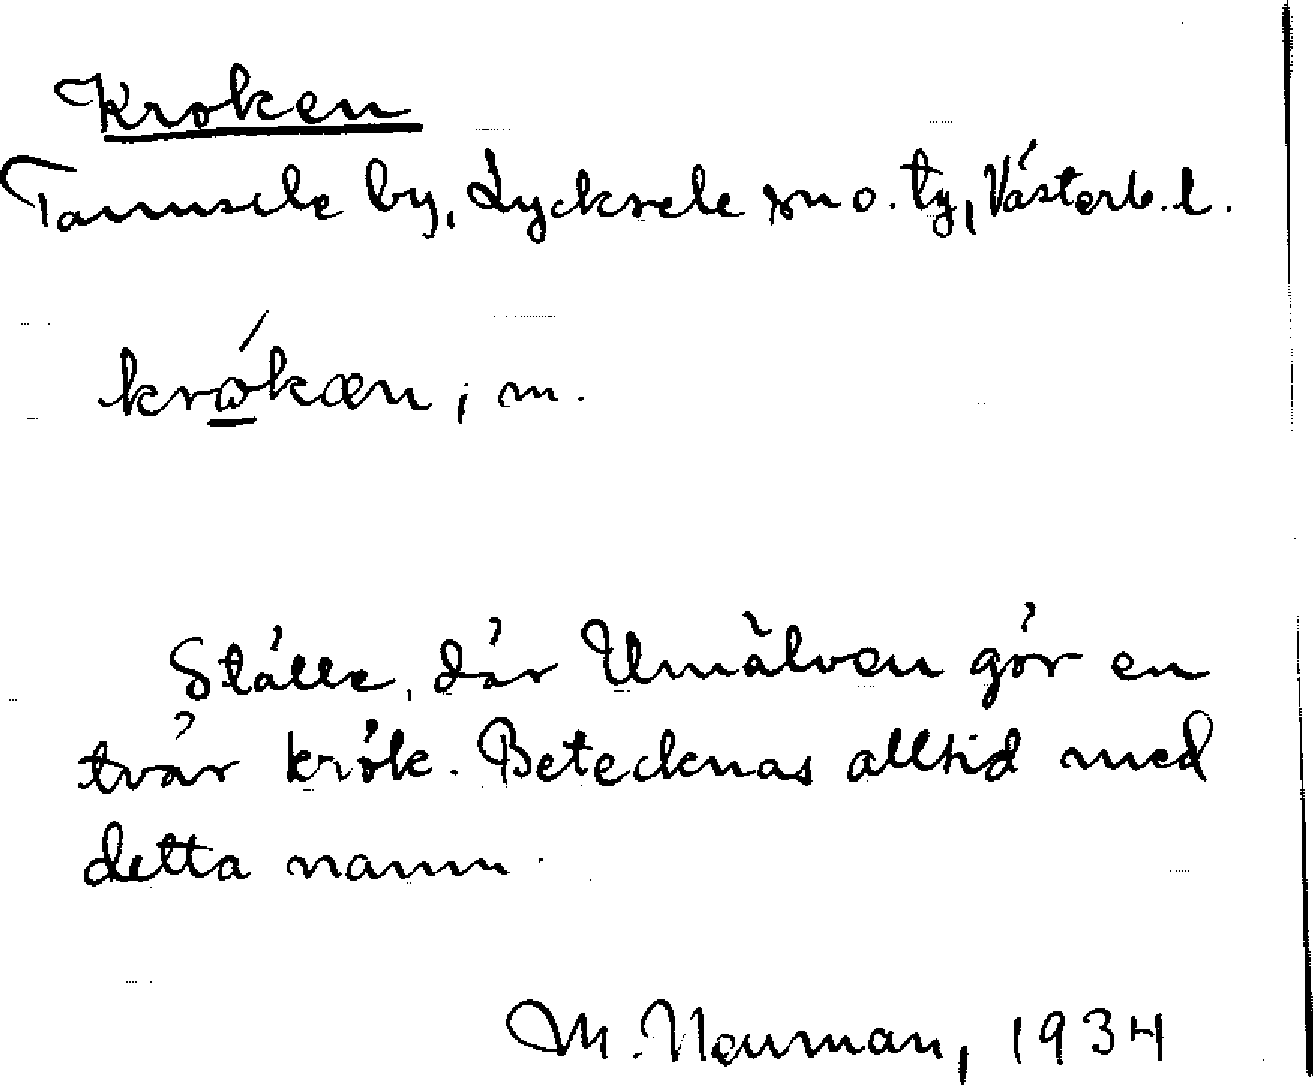 Kroken
Tannsele by, Lycksele sn o. tg, Västerb. l.
krókæn, m.
Ställe, där Umälven gör en
tvär krök. Betecknas alltid med
detta namn.
M. Neuman, 1934